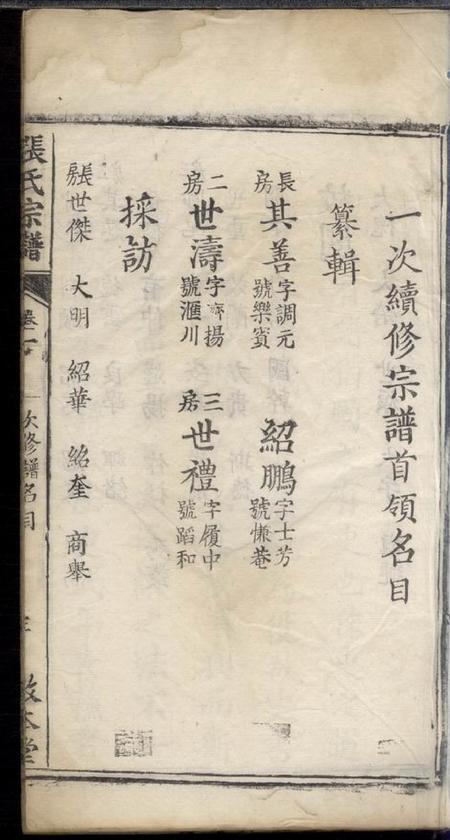 一次續修宗譜首領名目
纂輯
長房 其善 字調元 號樂賓 紹鵬 字士芳 號慊菴
二房 世濤 字 揚 號滙川 三房 世禮 字履中 號蹈和
採訪
張世傑 大明 紹華 紹奎 商舉
張氏宗譜 卷 一次修譜名目 敦本堂